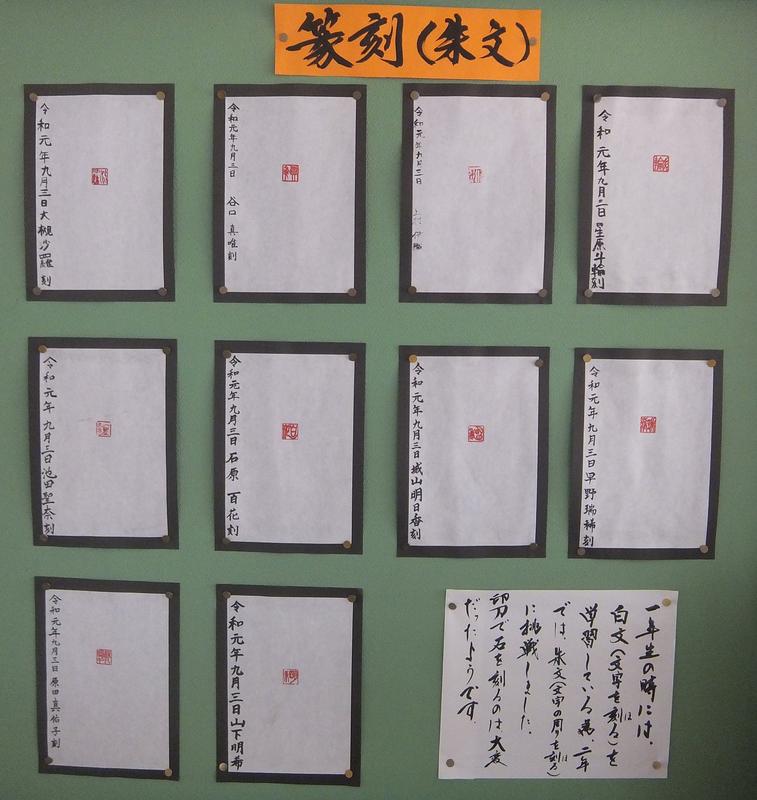 篆刻（朱文）
令和元年九月三日 大槻沙羅 刻
令和元年九月三日 谷口真唯刻
令和元年九月三日
令和元年九月三日 星原斗輪刻
令和元年九月三日 池田聖奈刻
令和元年九月三日 石原百花刻
令和元年九月三日 城山明日香刻
令和元年九月三日 早野瑞稀刻
令和元年九月三日 原田真佑子刻
令和元年九月三日 山下明希
一年生の時には、
白文（文字を刻る）を
学習している為、二年
では、朱文（文字の周りを刻る）
に挑戦しました。
印刀で石を刻るのは大変
だったようです。